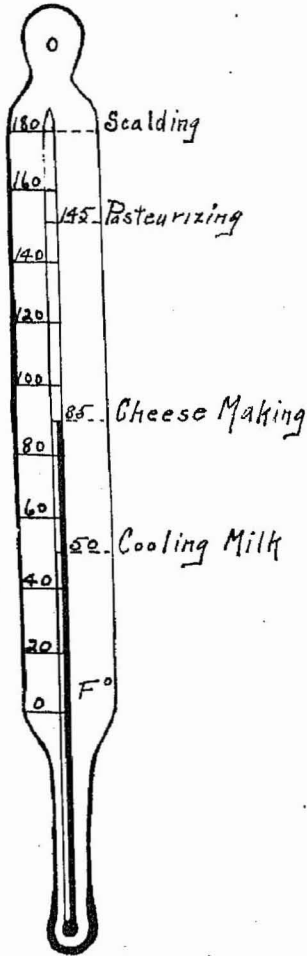 180 Scalding
160
145 Pasteurizing
140
120
100
85 Cheese Making
80
60
50 Cooling Milk
40
20
F°
0